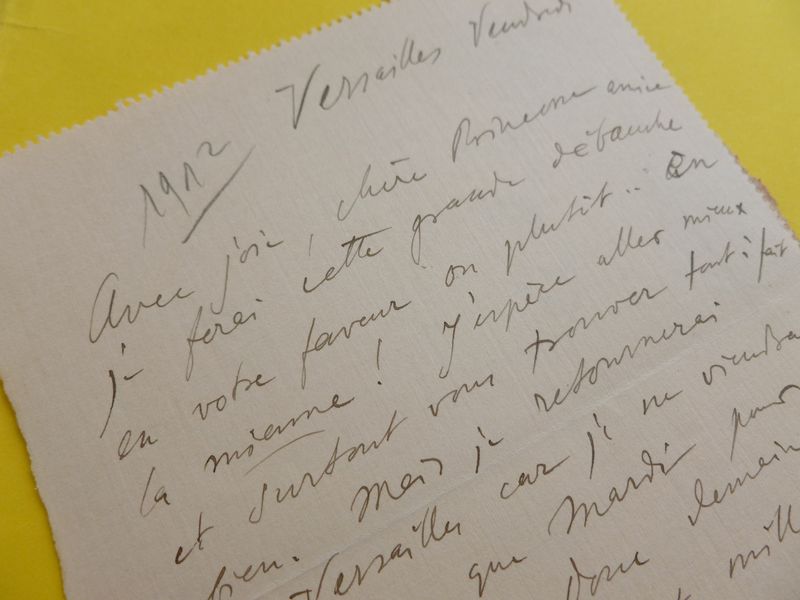 Versailles Vendredi
1912
Avec joie, chère Princesse amie
je ferai cette grande débauche
en votre faveur ou plutôt : en
la mienne ! J'espère aller mieux
et surtout vous trouver tout à fait
bien. Mais je retournerai
Versailles car je ne viendrai
que Mardi pour
donc demain
mill